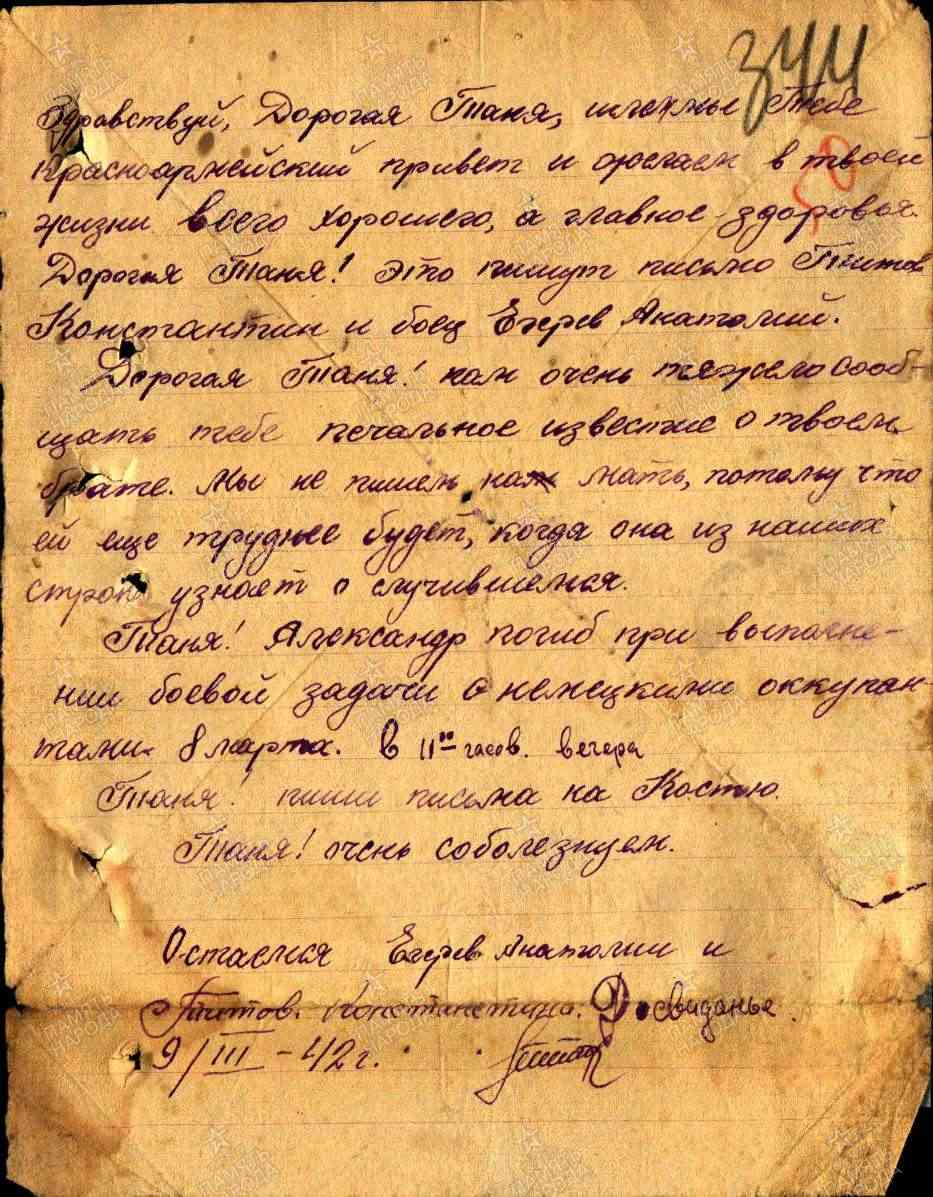 344
Здравствуй, Дорогая Таня, шлем мы Тебе
Красноармейский привет и желаем в твоей
жизни всего хорошего, а главное здоровья.
Дорогая Таня! это пишут письмо Титов
Константин и боец Егерев Анатолий.
Дорогая Таня! нам очень тяжело сооб-
щать тебе печальное известие о твоем
брате. Мы не пишем мать, потому что
ей еще труднее будет, когда она из наших
строк узнает о случившемся.
Таня! Александр погиб при выполне-
нии боевой задачи с немецкими оккупан-
тами 8 марта. в 11⁰⁰ часов. вечера
Таня! пиши письма на Костю.
Таня! очень соболезнуем.
Остаемся Егерев Анатолий и
Титов. Константина. Досвиданье.
9/III-42г. Титов
ПАМЯТЬ НАРОДА